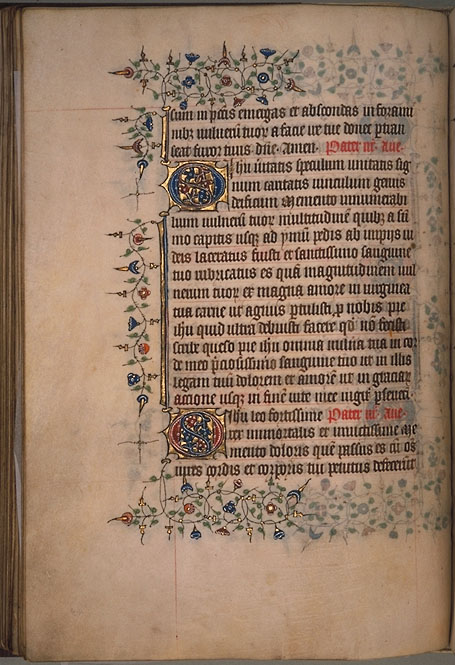 sum in pctis emergas et abscondas in forami
nibz vulnerū tuoꝝ a facie ire tue donec ptran
seat furor tuus dn̄e. Amen. Pater nr̄. Aue.
O ihu ūitatis speculum unitatis sig
num caritatis vinculum
Memento innumerabi
lium vulnerū tuoꝝ multitudinē quibz a sū
mo capitis usqꝫ ad ymū pedis ab impijs iu
deis laceratus fuisti et sanctissimo sanguine
tuo rubricatus es quā magnitudinem vul
nerum tuoꝝ et magna amore in virginea
tua carne ut agnus ptulisti, p nobis pie
ihu quid ultra debuisti facere qd nō fecisti
scribe queso pie ihu omnia vulna tua in cor
de meo p̄ciosissimo sanguine tuo ut in illis
legam tuū dolorem et amorē ut in graciar
accione usqꝫ in finē vite mee iugit̄ pseuerā.
O ihu leo fortissime Pater nr̄. Aue.
rex immortalis et inuictissime me
mento doloris quē passus es cū oēs
vires cordis et corporis tui penitus defecerūt